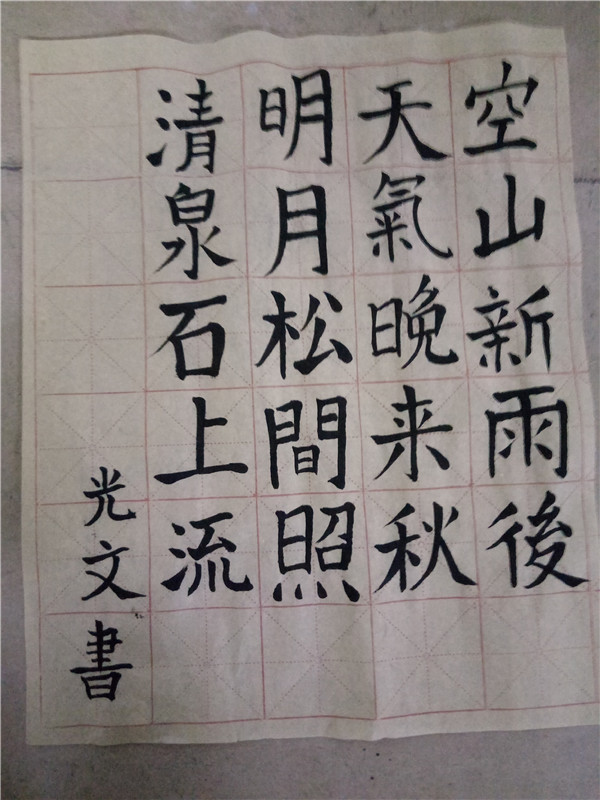 空山新雨後
天氣晚来秋
明月松間照
清泉石上流
光文書